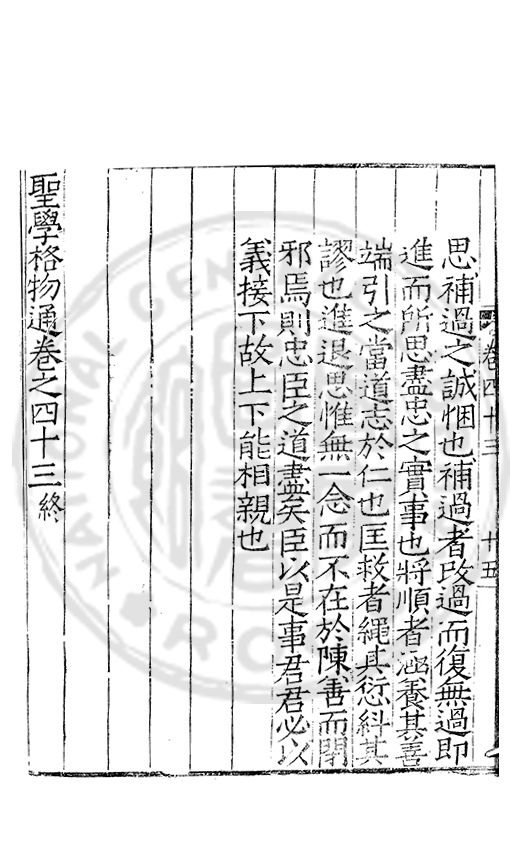 卷四十三 十五
思補過之誠悃也補過者改過而復無過即
進而所思盡忠之實事也將順者涵養其善
端引之當道志於仁也匡救者繩其愆糾其
謬也進退思惟無一念而不在於陳善而閉
邪焉則忠臣之道盡矣臣以是事君君必以
義接下故上下能相親也
聖學格物通卷之四十三終